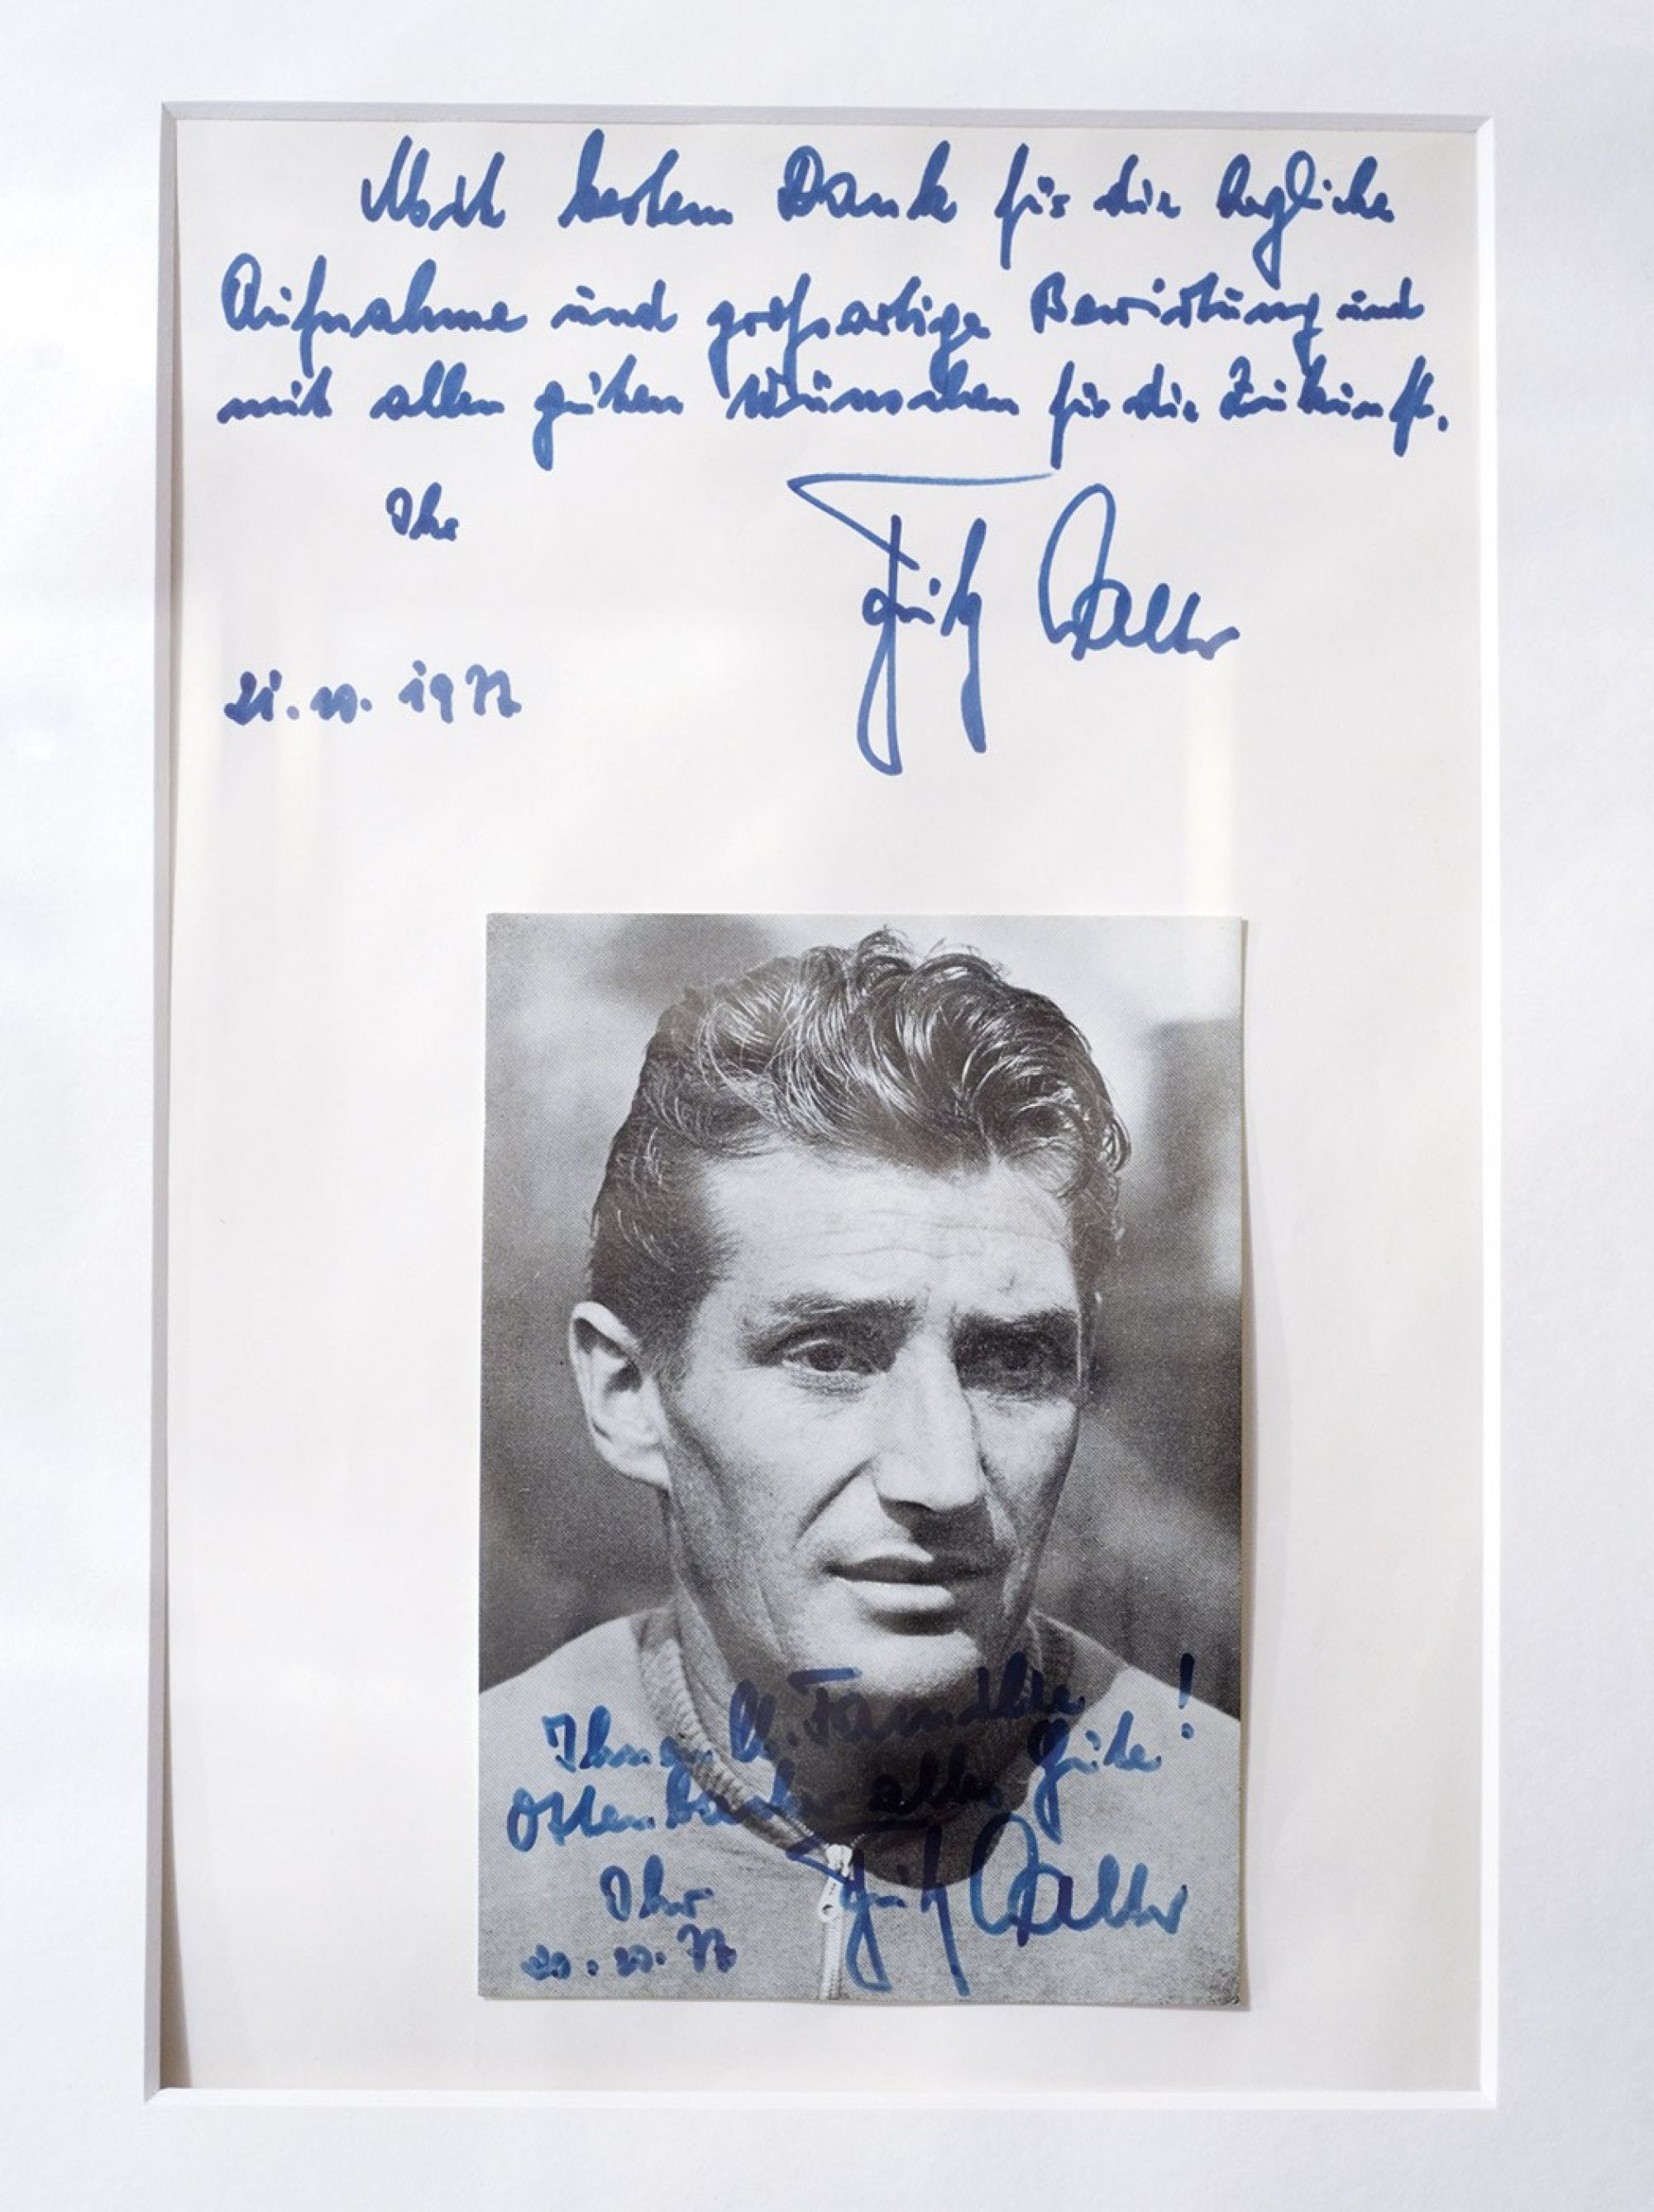 Mit bestem Dank für die herzliche
Aufnahme und großartige Bewirtung und
mit allen guten Wünschen für die Zukunft.
Ihr
Fritz Walter
21.10.1977
Ihnen u. Familie
alles Gute!
Ihr
Fritz Walter
20.10.77